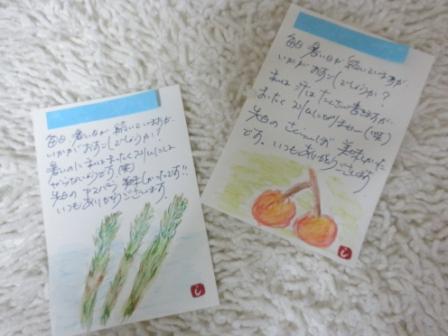 毎日 暑い日が 続いていますが
いかがおすごしでしょうか?
暑いのに 私はまったく
がらないようです(笑)
先日の アスパラ 美味しかったです!!
いつもありがとうございます。
し
毎日 暑い日が 続いていますが
いかがおすごしでしょうか?
私は 汗は たくさん
まったく (笑)
先日の さくらんぼ 美味しかった
です。いつもありがとうございます
し